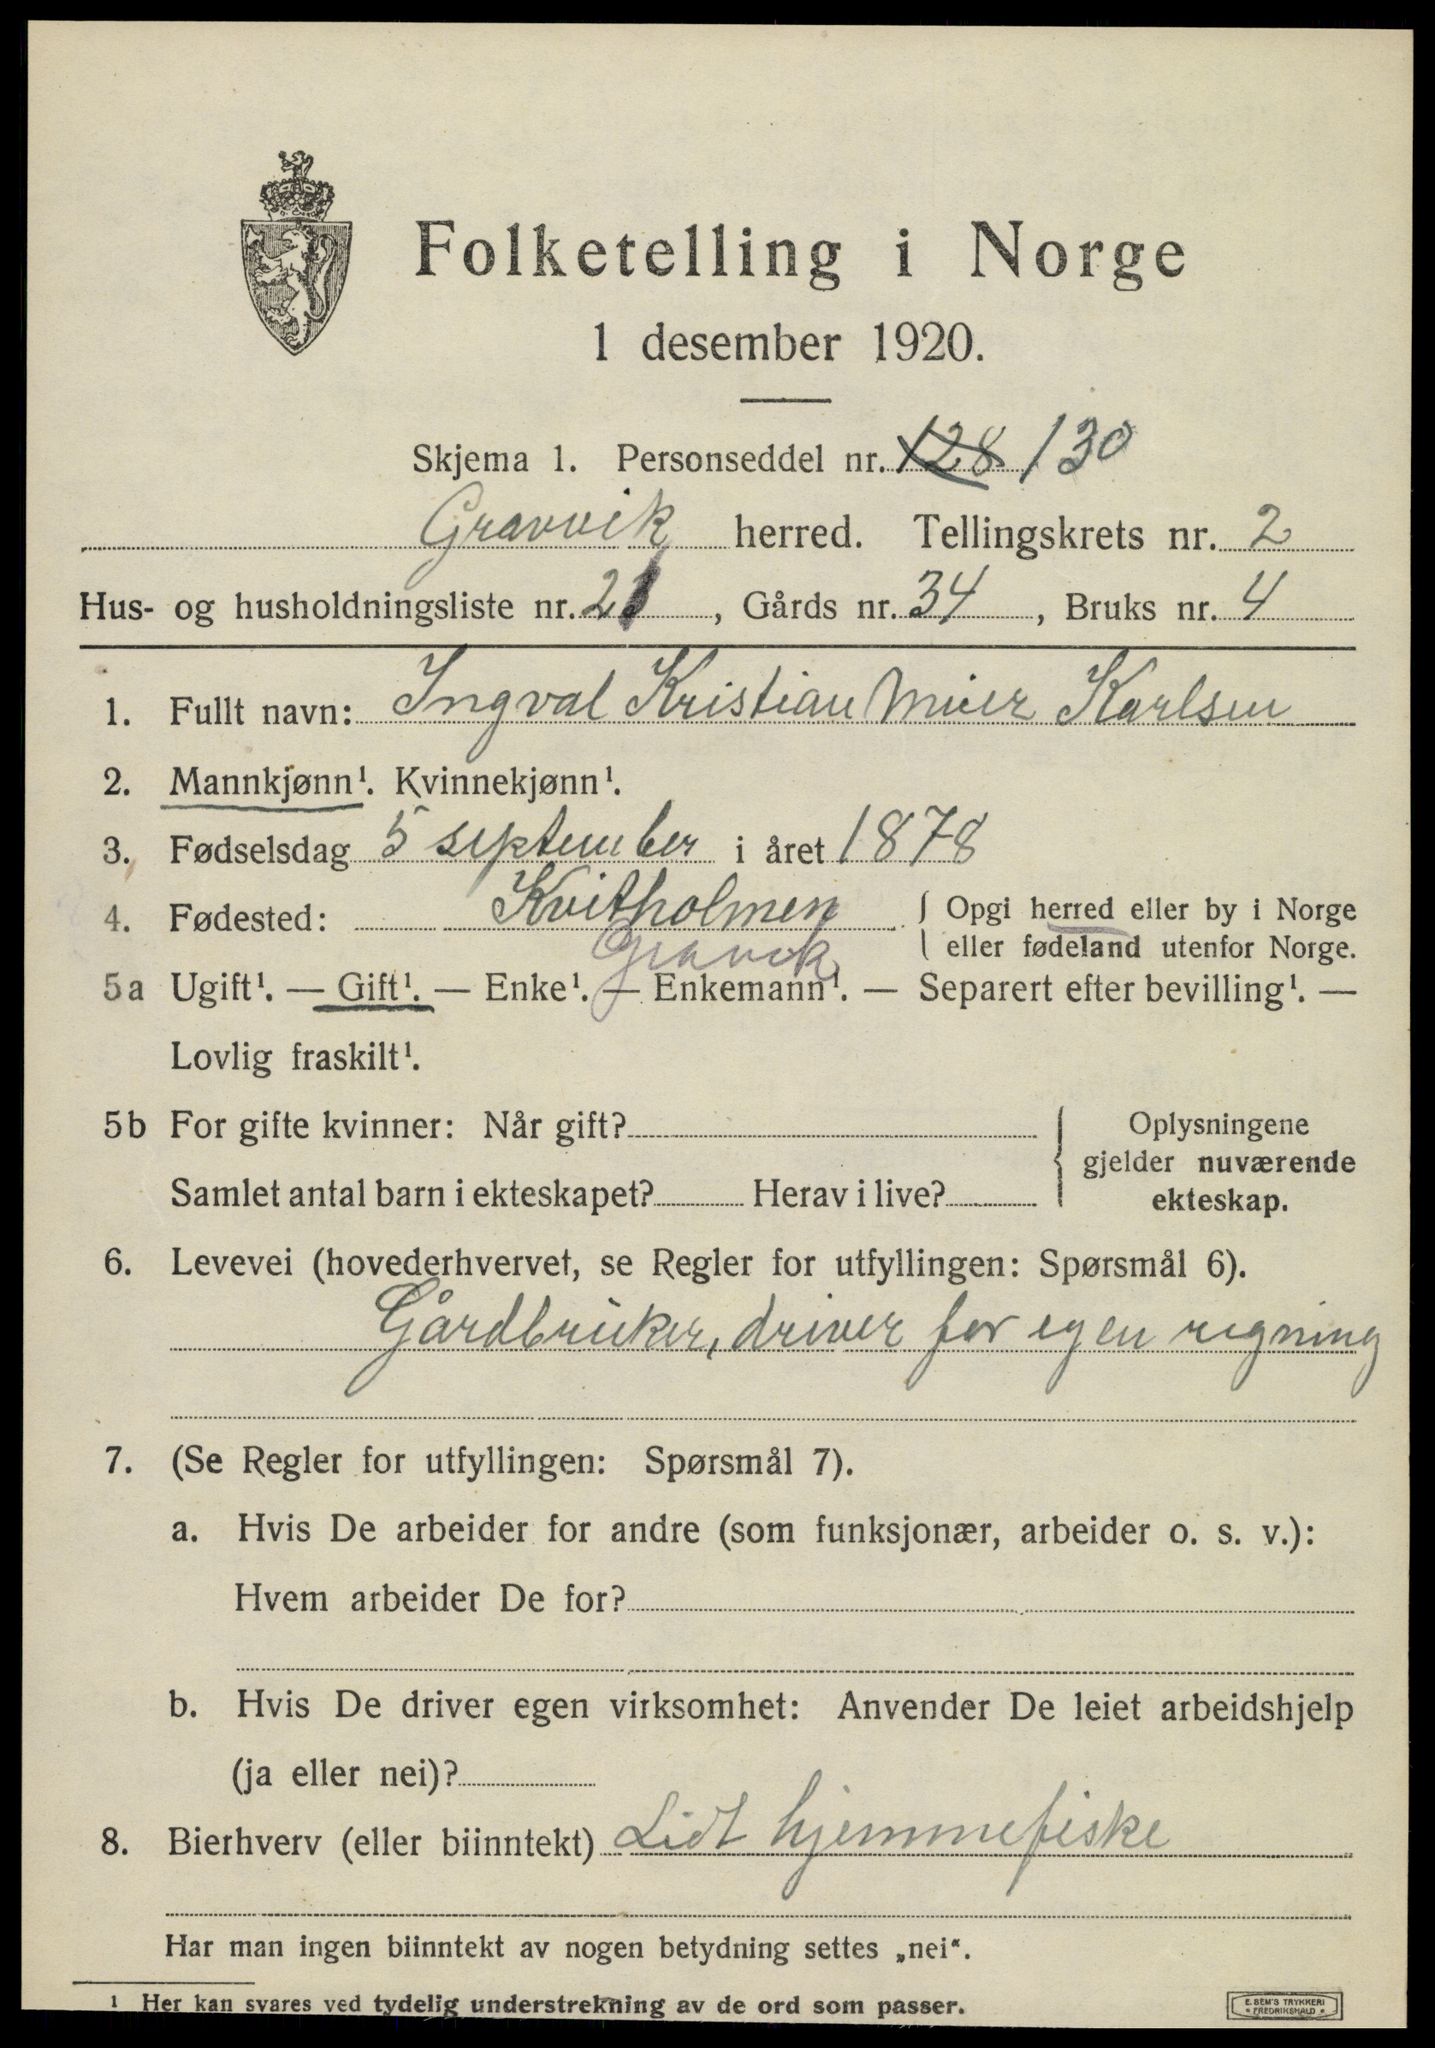 Folketelling i Norge
1 desember 1920.
Skjema 1. Personseddel nr. 128 130
Gravvik herred. Tellingskrets nr. 2
Hus- og husholdningsliste nr. 21, Gårds nr. 34, Bruks nr. 4
1. Fullt navn: Ingval Kristian Meier Karlsen
2. Mannkjønn¹. Kvinnekjønn¹.
3. Fødselsdag 5 september i året 1878
4. Fødested: Kvitholmen { Opgi herred eller by i Norge
Gravik eller fødeland utenfor Norge.
5a Ugift¹. — Gift¹. — Enke¹. — Enkemann¹. — Separert efter bevilling¹. —
Lovlig fraskilt¹.
5b For gifte kvinner: Når gift? { Oplysningene
gjelder nuværende
Samlet antal barn i ekteskapet? Herav i live? ekteskap.
6. Levevei (hovederhvervet, se Regler for utfyllingen: Spørsmål 6).
Gårdbruker, driver for egen regning
7. (Se Regler for utfyllingen: Spørsmål 7).
a. Hvis De arbeider for andre (som funksjonær, arbeider o. s. v.):
Hvem arbeider De for?
b. Hvis De driver egen virksomhet: Anvender De leiet arbeidshjelp
(ja eller nei)?
8. Bierhverv (eller biinntekt) Lidt hjemmefiske
Har man ingen biinntekt av nogen betydning settes „nei“.
¹ Her kan svares ved tydelig understrekning av de ord som passer.
E. SEM'S TRYKKERI
* FREDRIKSHALD *